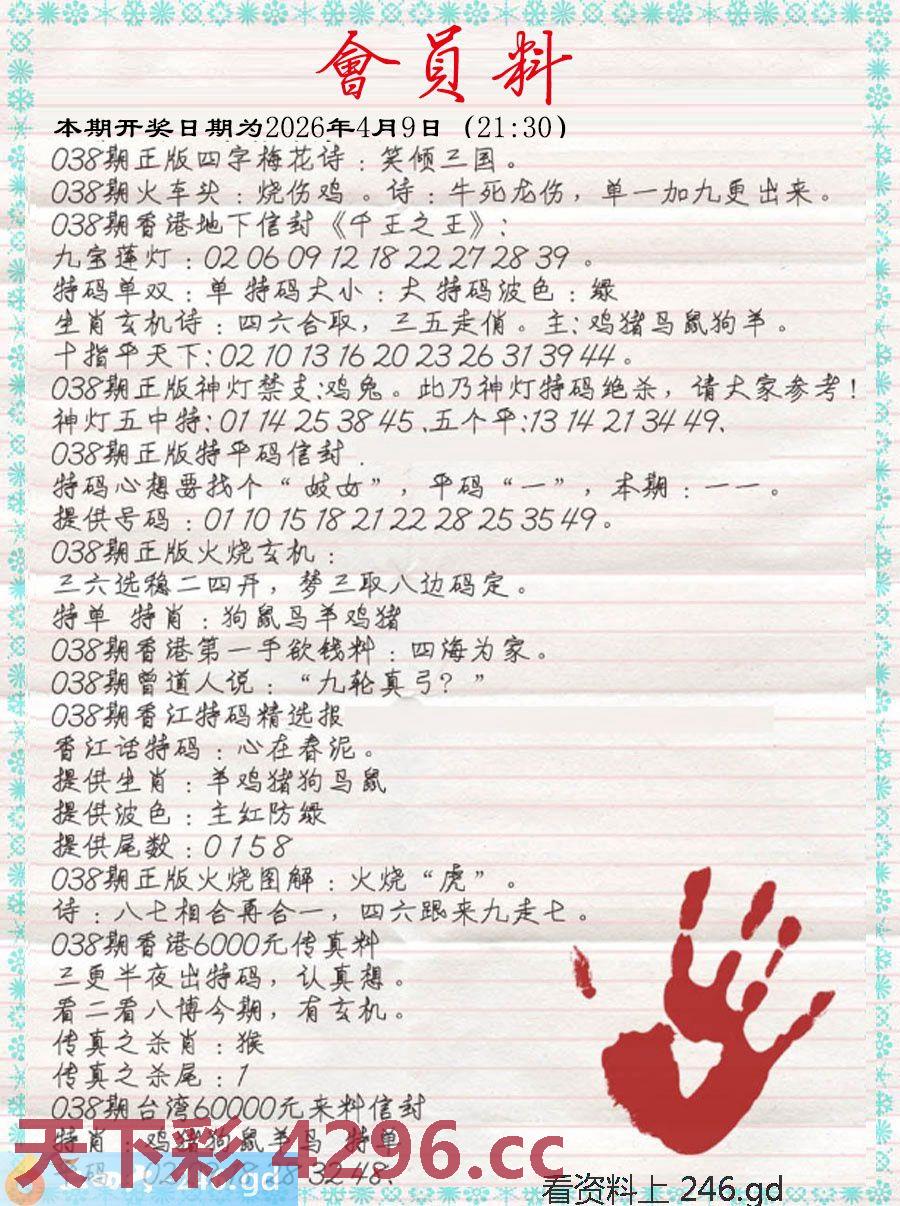 會員料
本期开奖日期为2026年4月9日 (21:30)
038期正版四字梅花诗：笑倾三国。
038期火车头：烧伤鸡 。诗：牛死龙伤，单一加九更出来。
038期香港地下信封《千王之王》：
九宝莲灯：02 06 09 12 18 22 27 28 39 。
特码单双：单 特码大小：大 特码波色：绿
生肖玄机诗：四六合取，三五走俏。主：鸡猪马鼠狗羊。
十指平天下：02 10 13 16 20 23 26 31 39 44 。
038期正版神灯禁支：鸡兔。此乃神灯特码绝杀，请大家参考！
神灯五中特：01 14 25 38 45 、五个平：13 14 21 34 49、
038期正版特平码信封 .
特码心想要找个“ 妓女”，平码“一”，本期：一一。
提供号码：01 10 15 18 21 22 28 25 35 49。
038期正版火烧玄机：
三六选稳二四开，梦三取八边码定。
特单 特肖：狗鼠马羊鸡猪
038期香港第一手欲钱料：四海为家。
038期曾道人说：“九轮真弓？”
038期香江特码精选报
香江话特码：心在春泥。
提供生肖：羊鸡猪狗马鼠
提供波色：主红防绿
提供尾数：0 1 5 8
038期正版火烧图解：火烧“虎”。
诗：八七相合再合一，四六跟来九走七。
038期香港6000元传真料
三更半夜出特码，认真想。
看二看八博今期，有玄机。
传真之杀肖：猴
传真之杀尾：1
038期台湾60000元来料信封
特肖：鸡猪狗鼠羊马 特单
天下彩 4296.cc
32 48、
246.gd
看资料上 246.gd